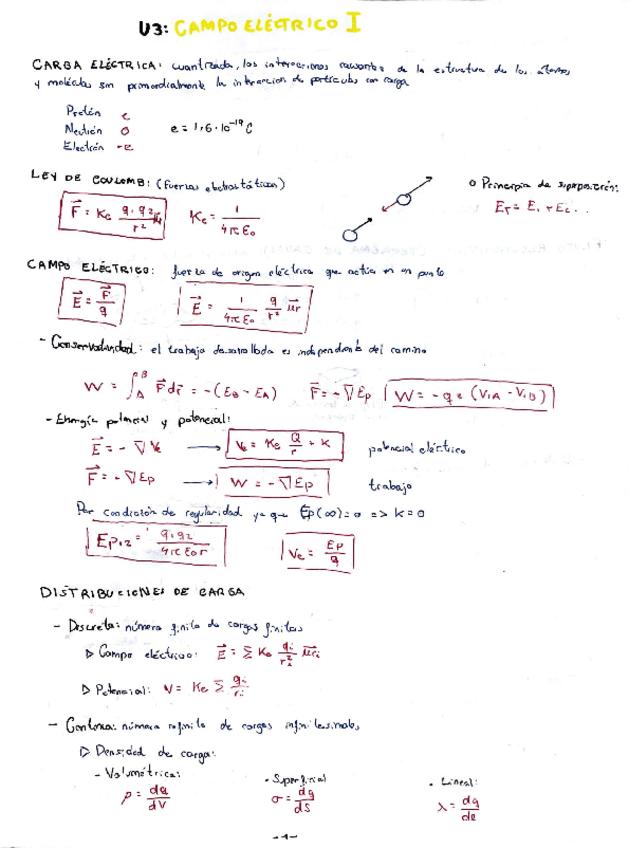 U3: CAMPO ELÉCTRICO I
CARGA ELÉCTRICA: cuantizada, las interacciones de la estructura de los átomos
y moléculas son primordialmente la interacción de partículas con carga
Protón e
Neutrón 0 e = 1,6·10⁻¹⁹ C
Electrón -e
LEY DE COULOMB: (Fuerzas electrostáticas) o Principio de superposición:
F⃗ = Ke q₁·q₂/r² Ke = 1/4πε₀ ET = E₁ + E₂...
CAMPO ELÉCTRICO: fuerza de origen eléctrico que actúa en un punto
E⃗ = F⃗/q E⃗ = 1/4πε₀ q/r² u⃗r
- Conservatividad: el trabajo desarrollado es independiente del camino
W = ∫_A^B F⃗ dr⃗ = -(EB - EA) F⃗ = -∇Ep W = -q₂ (V₁A - V₁B)
- Energía potencial y potencial:
E⃗ = -∇Ve → Ve = Ke Q/r + K potencial eléctrico
F⃗ = -∇Ep → W = -∇Ep trabajo
Por condición de regularidad ya que Ep(∞)=0 => k=0
Ep₁₂ = q₁q₂/4πε₀r Ve = Ep/q
DISTRIBUCIONES DE CARGA
- Discreta: número finito de cargas finitas
▷ Campo eléctrico: E⃗ = Σ Ke qi/ri² u⃗ri
▷ Potencial: V = Ke Σ qi/ri
- Continua: número infinito de cargas infinitesimales
▷ Densidad de carga:
- Volumétrica: - Superficial - Lineal:
ρ = dq/dV σ = dq/dS λ = dq/dl
-1-